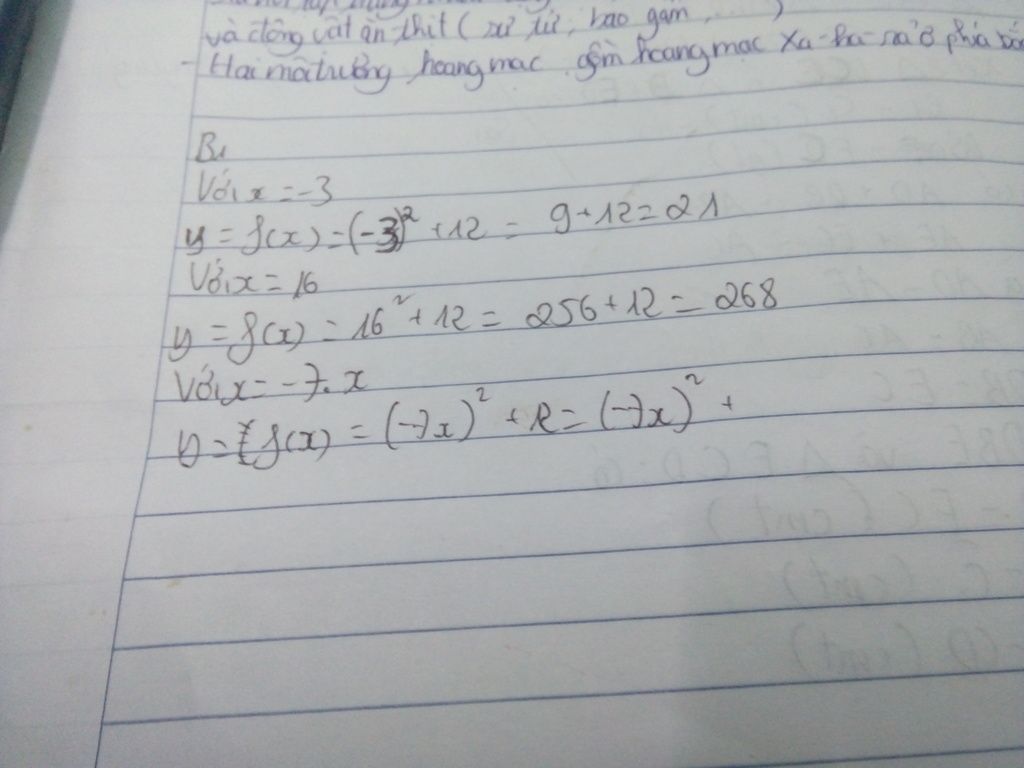 và động vật ăn thịt ( sư tử, báo gấm, ....)
- Hai môi trường hoang mạc gồm hoang mạc Xa-ha-ra ở phía bắc
B1
Với x = -3
y = f(x) = (-3)² + 12 = 9 + 12 = 21
Với x = 16
y = f(x) = 16² + 12 = 256 + 12 = 268
Với x = -7.x
y = f(x) = (-7x)² + 12 = (-7x)² +